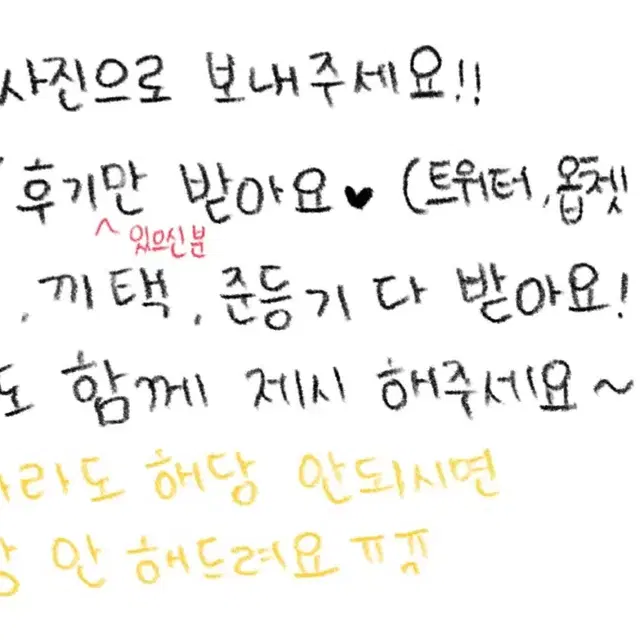 사진으로 보내주세요!!
후기만 받아요♥ (트위터, 옵젯
있으신분
, 끼택, 준등기 다 받아요!
도 함께 제시 해주세요~
라도 해당 안되시면
안 해드려요ㅠㅠ